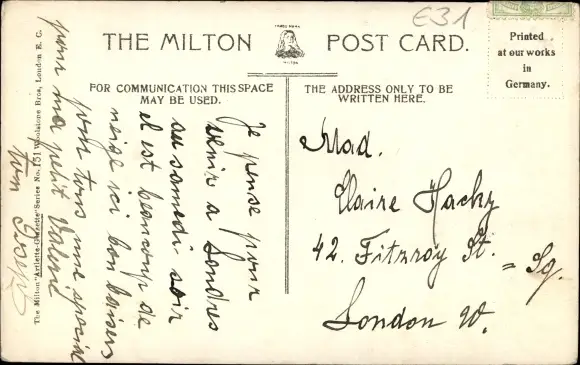 E31
THE MILTON POST CARD.
Printed
at our works
in
Germany.
FOR COMMUNICATION THIS SPACE
MAY BE USED.
THE ADDRESS ONLY TO BE
WRITTEN HERE.
Je pense pour
venir a Londres
au samedi soir
il est beaucoup de
neige ici bon baisers
pour tous une special
pour ma petit Valerie
ton
Mad.
Claire Hacky
42. Fitzroy St.
= Sq.
London W.
The Milton "Artlette-Glazette" Series No. 151 Woolstone Bros, London E. C.